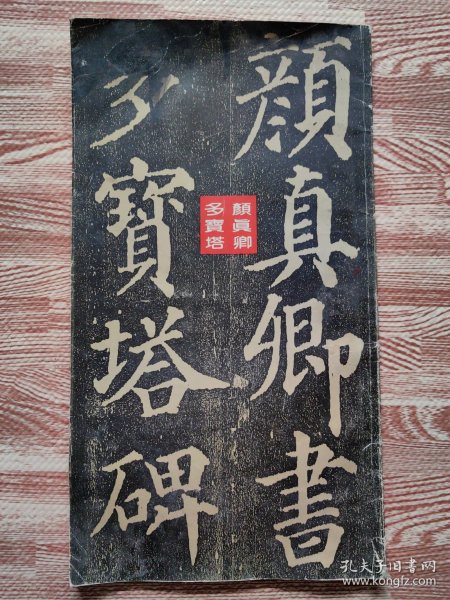 顔真卿書
多寶塔碑
顏眞卿
多寶塔
孔夫子旧书网
www.kongfz.com